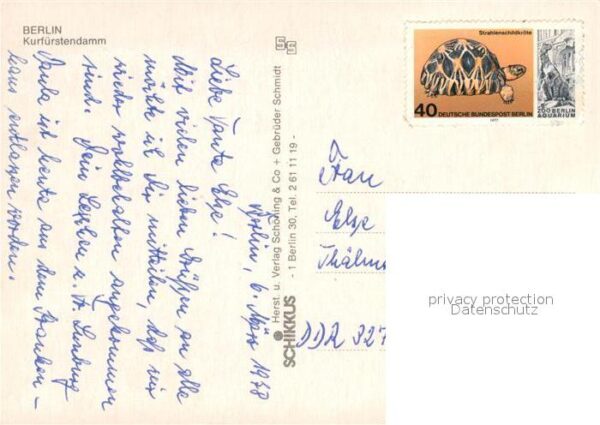 BERLIN
Kurfürstendamm
Berlin, 6. März 1978
Liebe Tante Else!
Mit vielen lieben Grüßen an alle
möchte ich Dir mitteilen, daß wir
wieder wohlbehalten angekommen
sind. Dein u.
Tante ist heute aus dem Kranken-
haus entlassen worden.
SCHIKKUS
Herst. u. Verlag Schöning & Co + Gebrüder Schmidt
- 1 Berlin 30, Tel. 2 61 11 19 -
Strahlenschildkröte
40 DEUTSCHE BUNDESPOST BERLIN
1977
ZOO BERLIN
AQUARIUM
Frau
Else
Thälma
DDR 327
privacy protection
Datenschutz